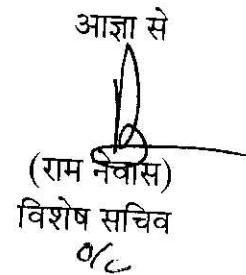 आज्ञा से
(राम नेवास)
विशेष सचिव
o/c